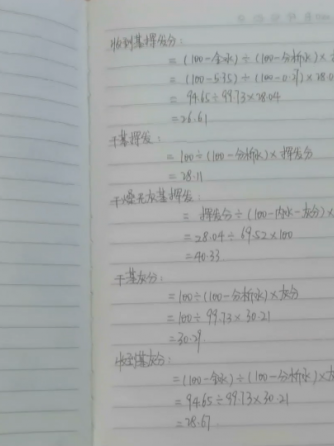 收到基挥发分:
= (100-全水) ÷ (100-分析水) ×
= (100-5.35) ÷ (100-0.27) × 28.04
= 94.65 ÷ 99.73 × 28.04
= 26.61
干基挥发:
= 100 ÷ (100-分析水) × 挥发分
= 28.11
干燥无灰基挥发:
= 挥发分 ÷ (100-内水-灰分) ×
= 28.04 ÷ 69.52 × 100
= 40.33
干基灰分:
= 100 ÷ (100-分析水) × 灰分
= 100 ÷ 99.73 × 30.21
= 30.29
收到基灰分:
= (100-全水) ÷ (100-分析水) × 灰
= 94.65 ÷ 99.73 × 30.21
= 28.67